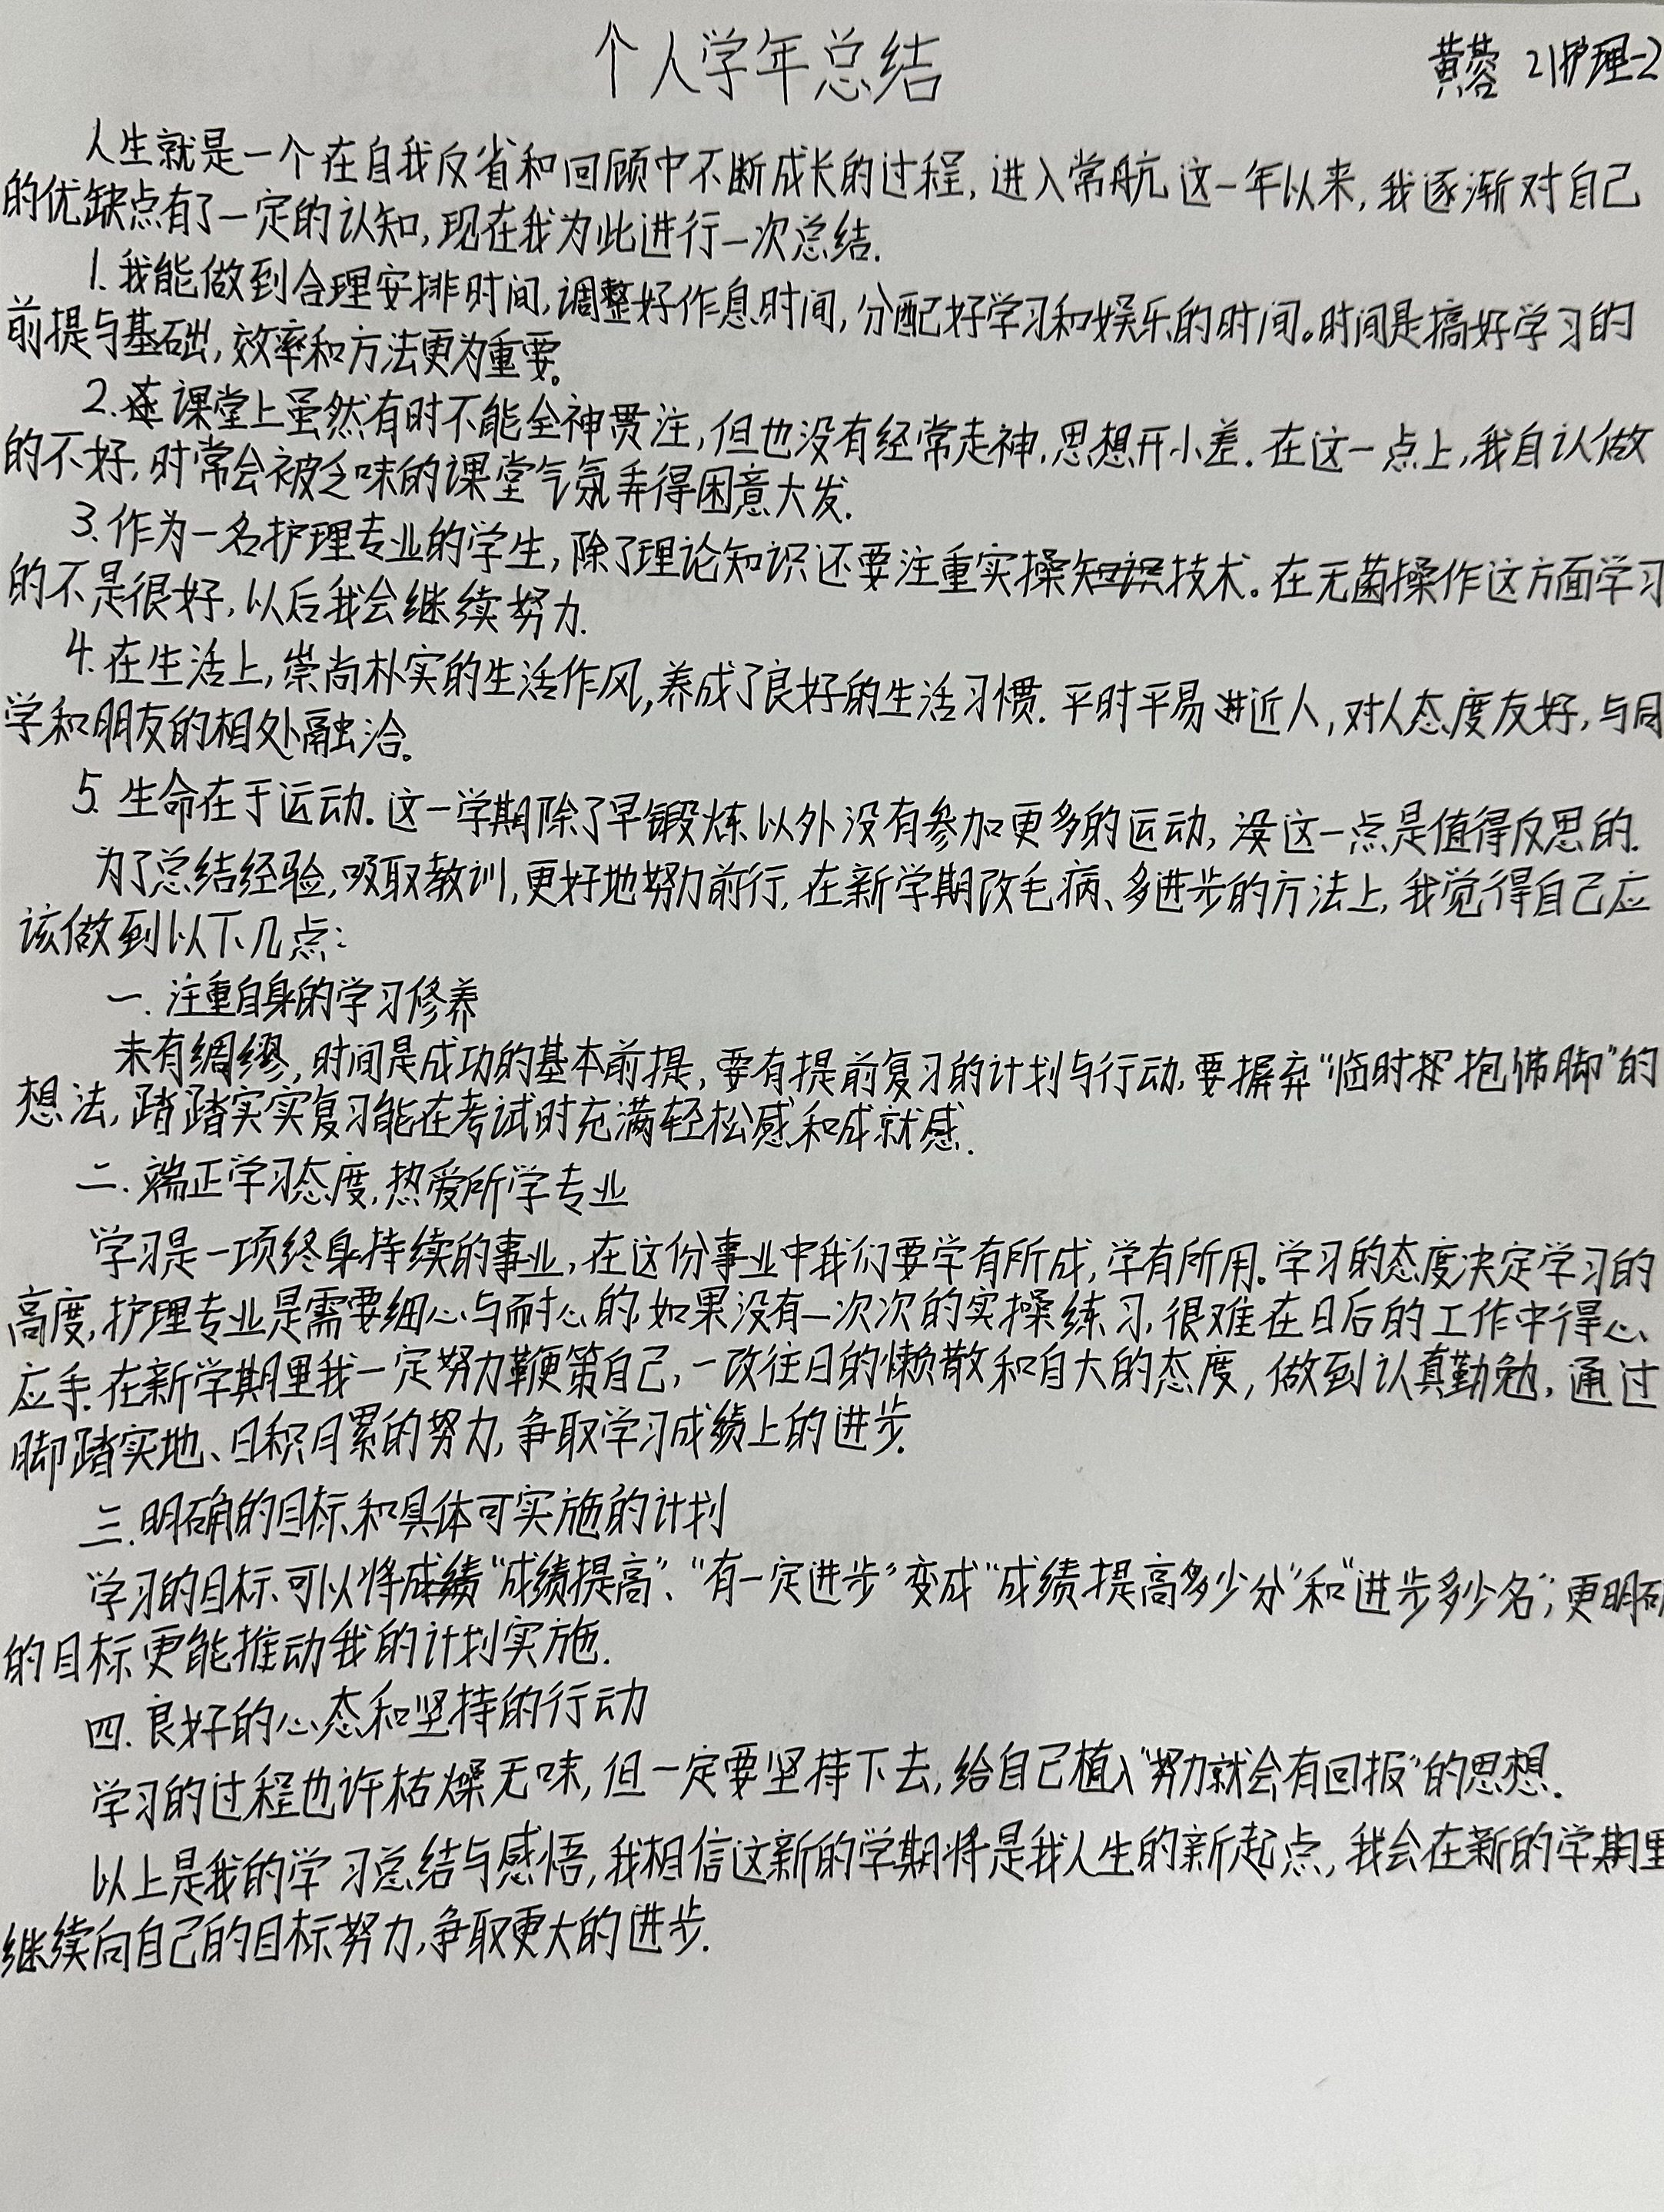 个人学年总结
黄蓉 21护理-2
人生就是一个在自我反省和回顾中不断成长的过程,进入常航这一年以来,我逐渐对自己
的优缺点有了一定的认知,现在我为此进行一次总结.
1.我能做到合理安排时间,调整好作息时间,分配好学习和娱乐的时间。时间是搞好学习的
前提与基础,效率和方法更为重要。
2.课堂上虽然有时不能全神贯注,但也没有经常走神,思想开小差.在这一点上,我自认做
的不好,时常会被乏味的课堂气氛弄得困意大发.
3.作为一名护理专业的学生,除了理论知识还要注重实操技术。在无菌操作这方面学习
的不是很好,以后我会继续努力.
4.在生活上,崇尚朴实的生活作风,养成了良好的生活习惯.平时平易近人,对人态度友好,与同
学和朋友的相处融洽。
5.生命在于运动.这一学期除了早锻炼以外没有参加更多的运动,这一点是值得反思的.
为了总结经验,吸取教训,更好地努力前行,在新学期改毛病、多进步的方法上,我觉得自己应
该做到以下几点:
一.注重自身的学习修养
未有绸缪,时间是成功的基本前提,要有提前复习的计划与行动,要摒弃“临时抱佛脚”的
想法,踏踏实实复习能在考试时充满轻松感和成就感.
二.端正学习态度,热爱所学专业
学习是一项终身持续的事业,在这份事业中我们要学有所成,学有所用。学习的态度决定学习的
高度,护理专业是需要细心与耐心的,如果没有一次次的实操练习,很难在日后的工作中得心
应手.在新学期里我一定努力鞭策自己,一改往日的懒散和自大的态度,做到认真勤勉,通过
脚踏实地、日积月累的努力,争取学习成绩上的进步.
三.明确的目标和具体可实施的计划
学习的目标可以将“成绩提高”、“有一定进步”变成“成绩提高多少分”和“进步多少名”;更明确
的目标更能推动我的计划实施.
四.良好的心态和坚持的行动
学习的过程也许枯燥无味,但一定要坚持下去,给自己植入“努力就会有回报”的思想.
以上是我的学习总结与感悟,我相信这新的学期将是我人生的新起点,我会在新的学期里
继续向自己的目标努力,争取更大的进步.